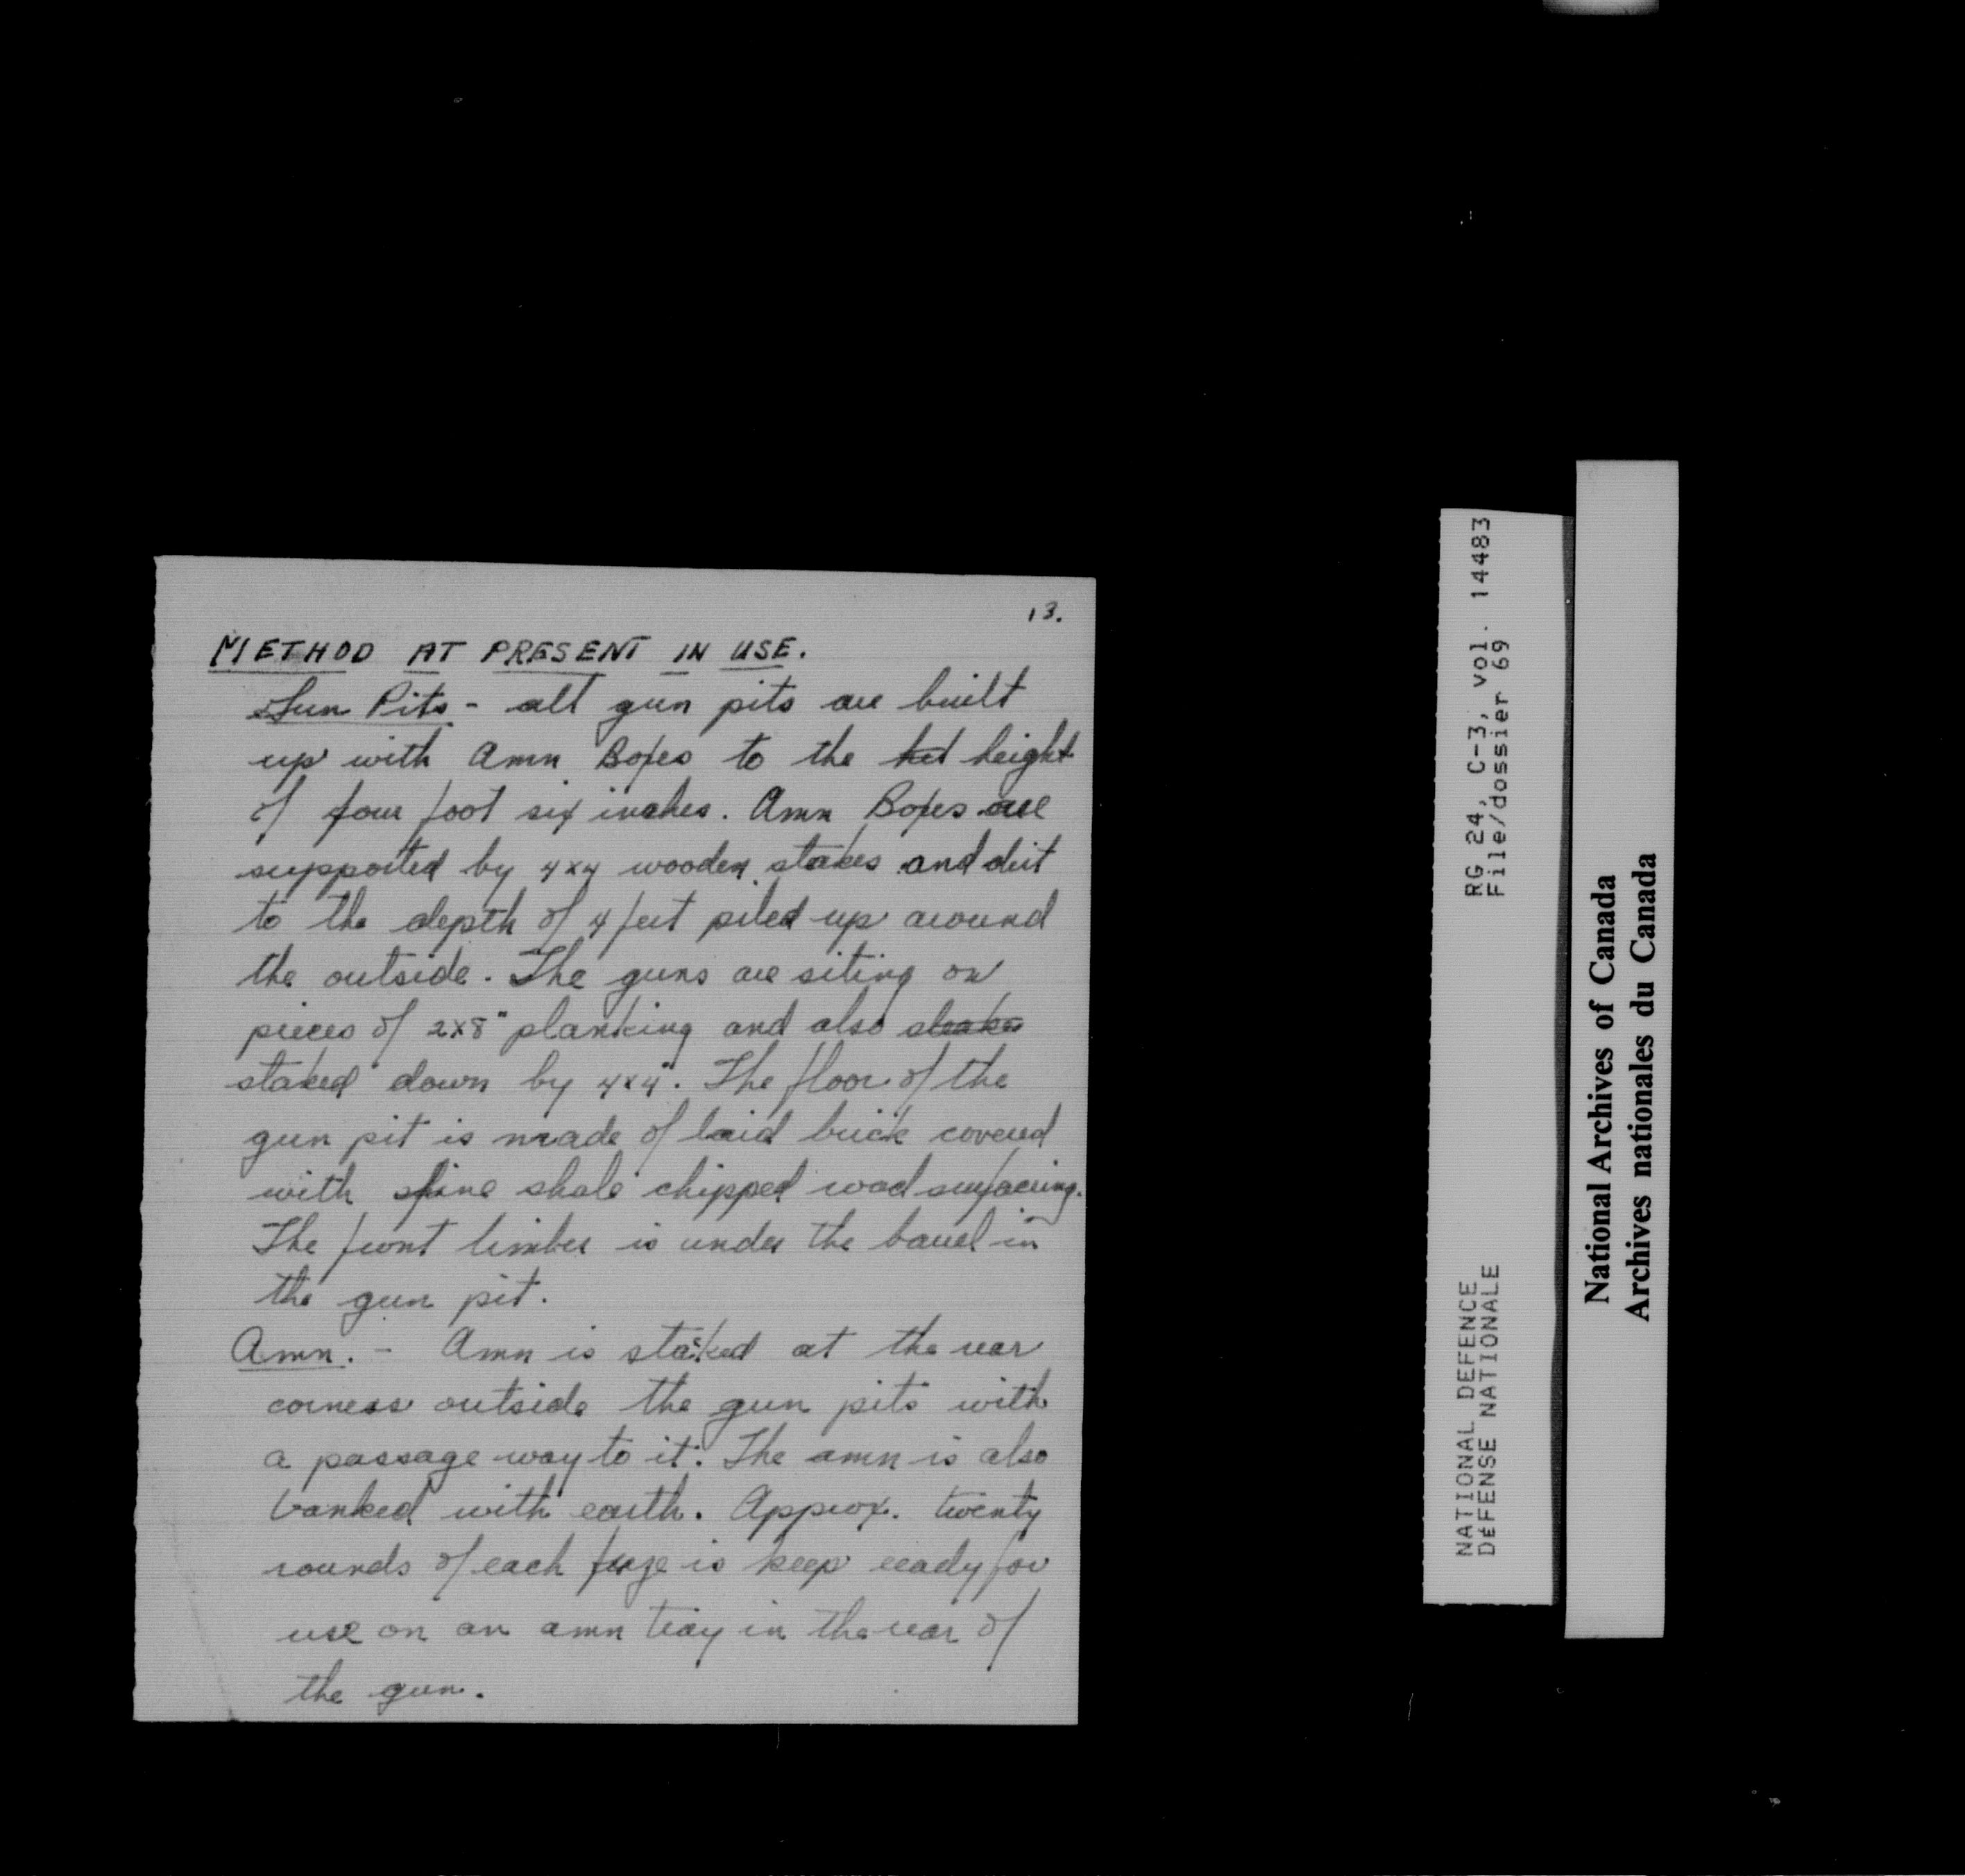 13.
METHOD AT PRESENT IN USE.
Gun Pits - all gun pits are built
up with Amn Boxes to the het height
of four foot six inches. Amn Boxes are
supported by 4x4 wooden stakes and dirt
to the depth of 4 feet piled up around
the outside. The guns are siting on
pieces of 2x8" planking and also
staked down by 4x4". The floor of the
gun pit is made of laid brick covered
with fine shale chipped road surfacing.
The front limber is under the barrel in
the gun pit.
Amn. - Amn is stacked at the rear
corners outside the gun pits with
a passage way to it. The amn is also
banked with earth. Approx. twenty
rounds of each fuze is keep ready for
use on an amn tray in the rear of
the gun.
RG 24, C-3, vol. 14483
File/dossier 69
NATIONAL DEFENCE
DÉFENSE NATIONALE
National Archives of Canada
Archives nationales du Canada